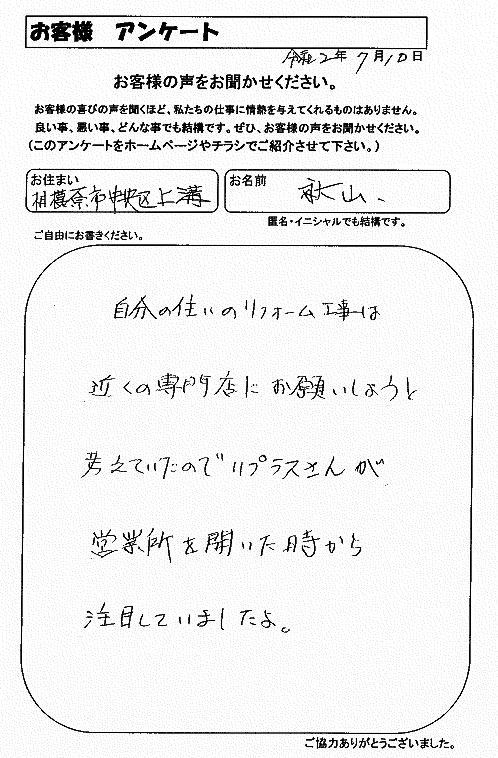 お客様 アンケート
令和2年7月10日
お客様の声をお聞かせください。
お客様の喜びの声を聞くほど、私たちの仕事に情熱を与えてくれるものはありません。
良い事、悪い事、どんな事でも結構です。ぜひ、お客様の声をお聞かせください。
(このアンケートをホームページやチラシでご紹介させて下さい。)
お住まい 相模原市中央区上溝
お名前 秋山、
匿名・イニシャルでも結構です。
ご自由にお書きください。
自分の住いのリフォーム工事は
近くの専門店にお願いしようと
考えていたのでリプラスさんが
営業所を開いた時から
注目していましたよ。
ご協力ありがとうございました。